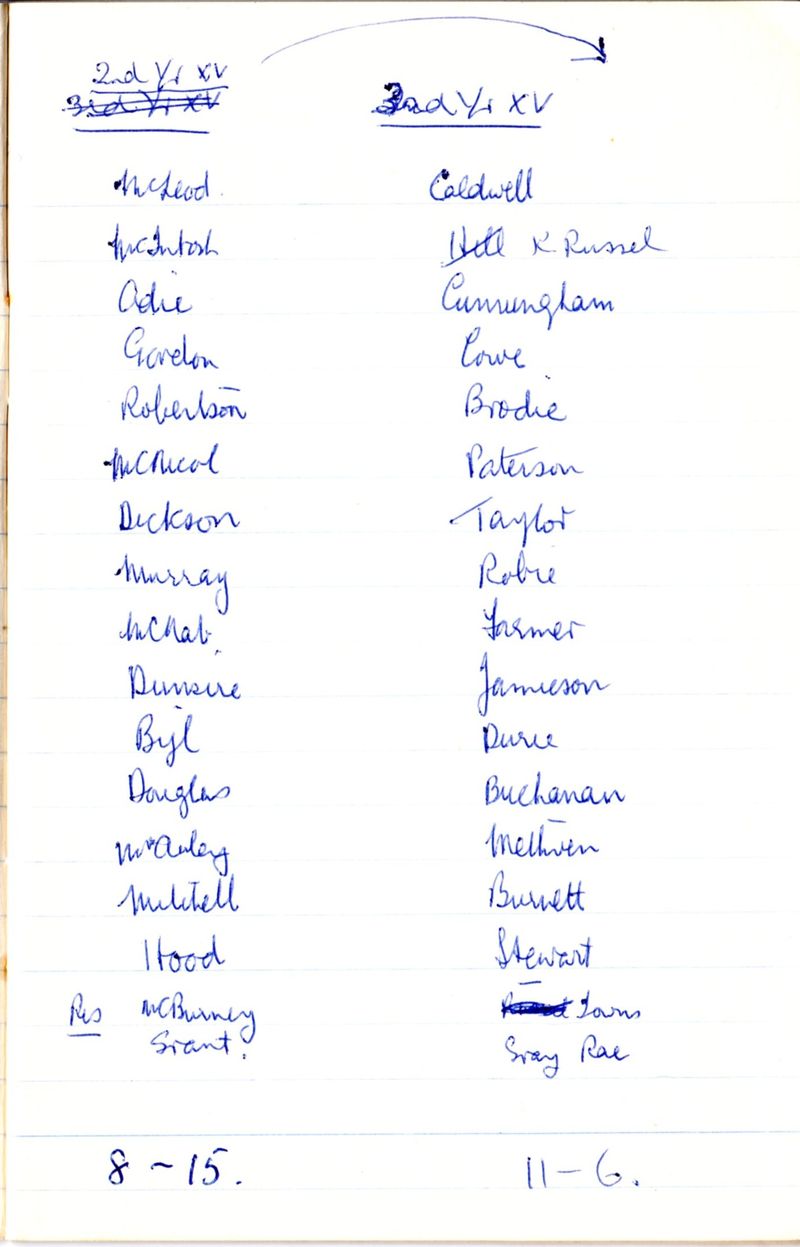 2nd Yr XV
3rd Yr XV
McLeod
McIntosh
Adie
Gordon
Robertson
McNicol
Dickson
Murray
McNab
Dunsire
Bijl
Douglas
McAuley
Mitchell
Hood
Res McBurney
Grant.
8 - 15.
Yr XV
Caldwell
Hill K Russel
Cunningham
Lowe
Brodie
Paterson
Taylor
Robie
Farmer
Jamieson
Durie
Buchanan
Methven
Burnett
Stewart
Towns
Gray Rae
11 - 6.